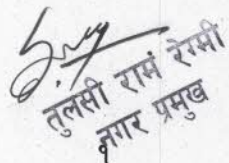 तुलसी राम रेग्मी
नगर प्रमुख